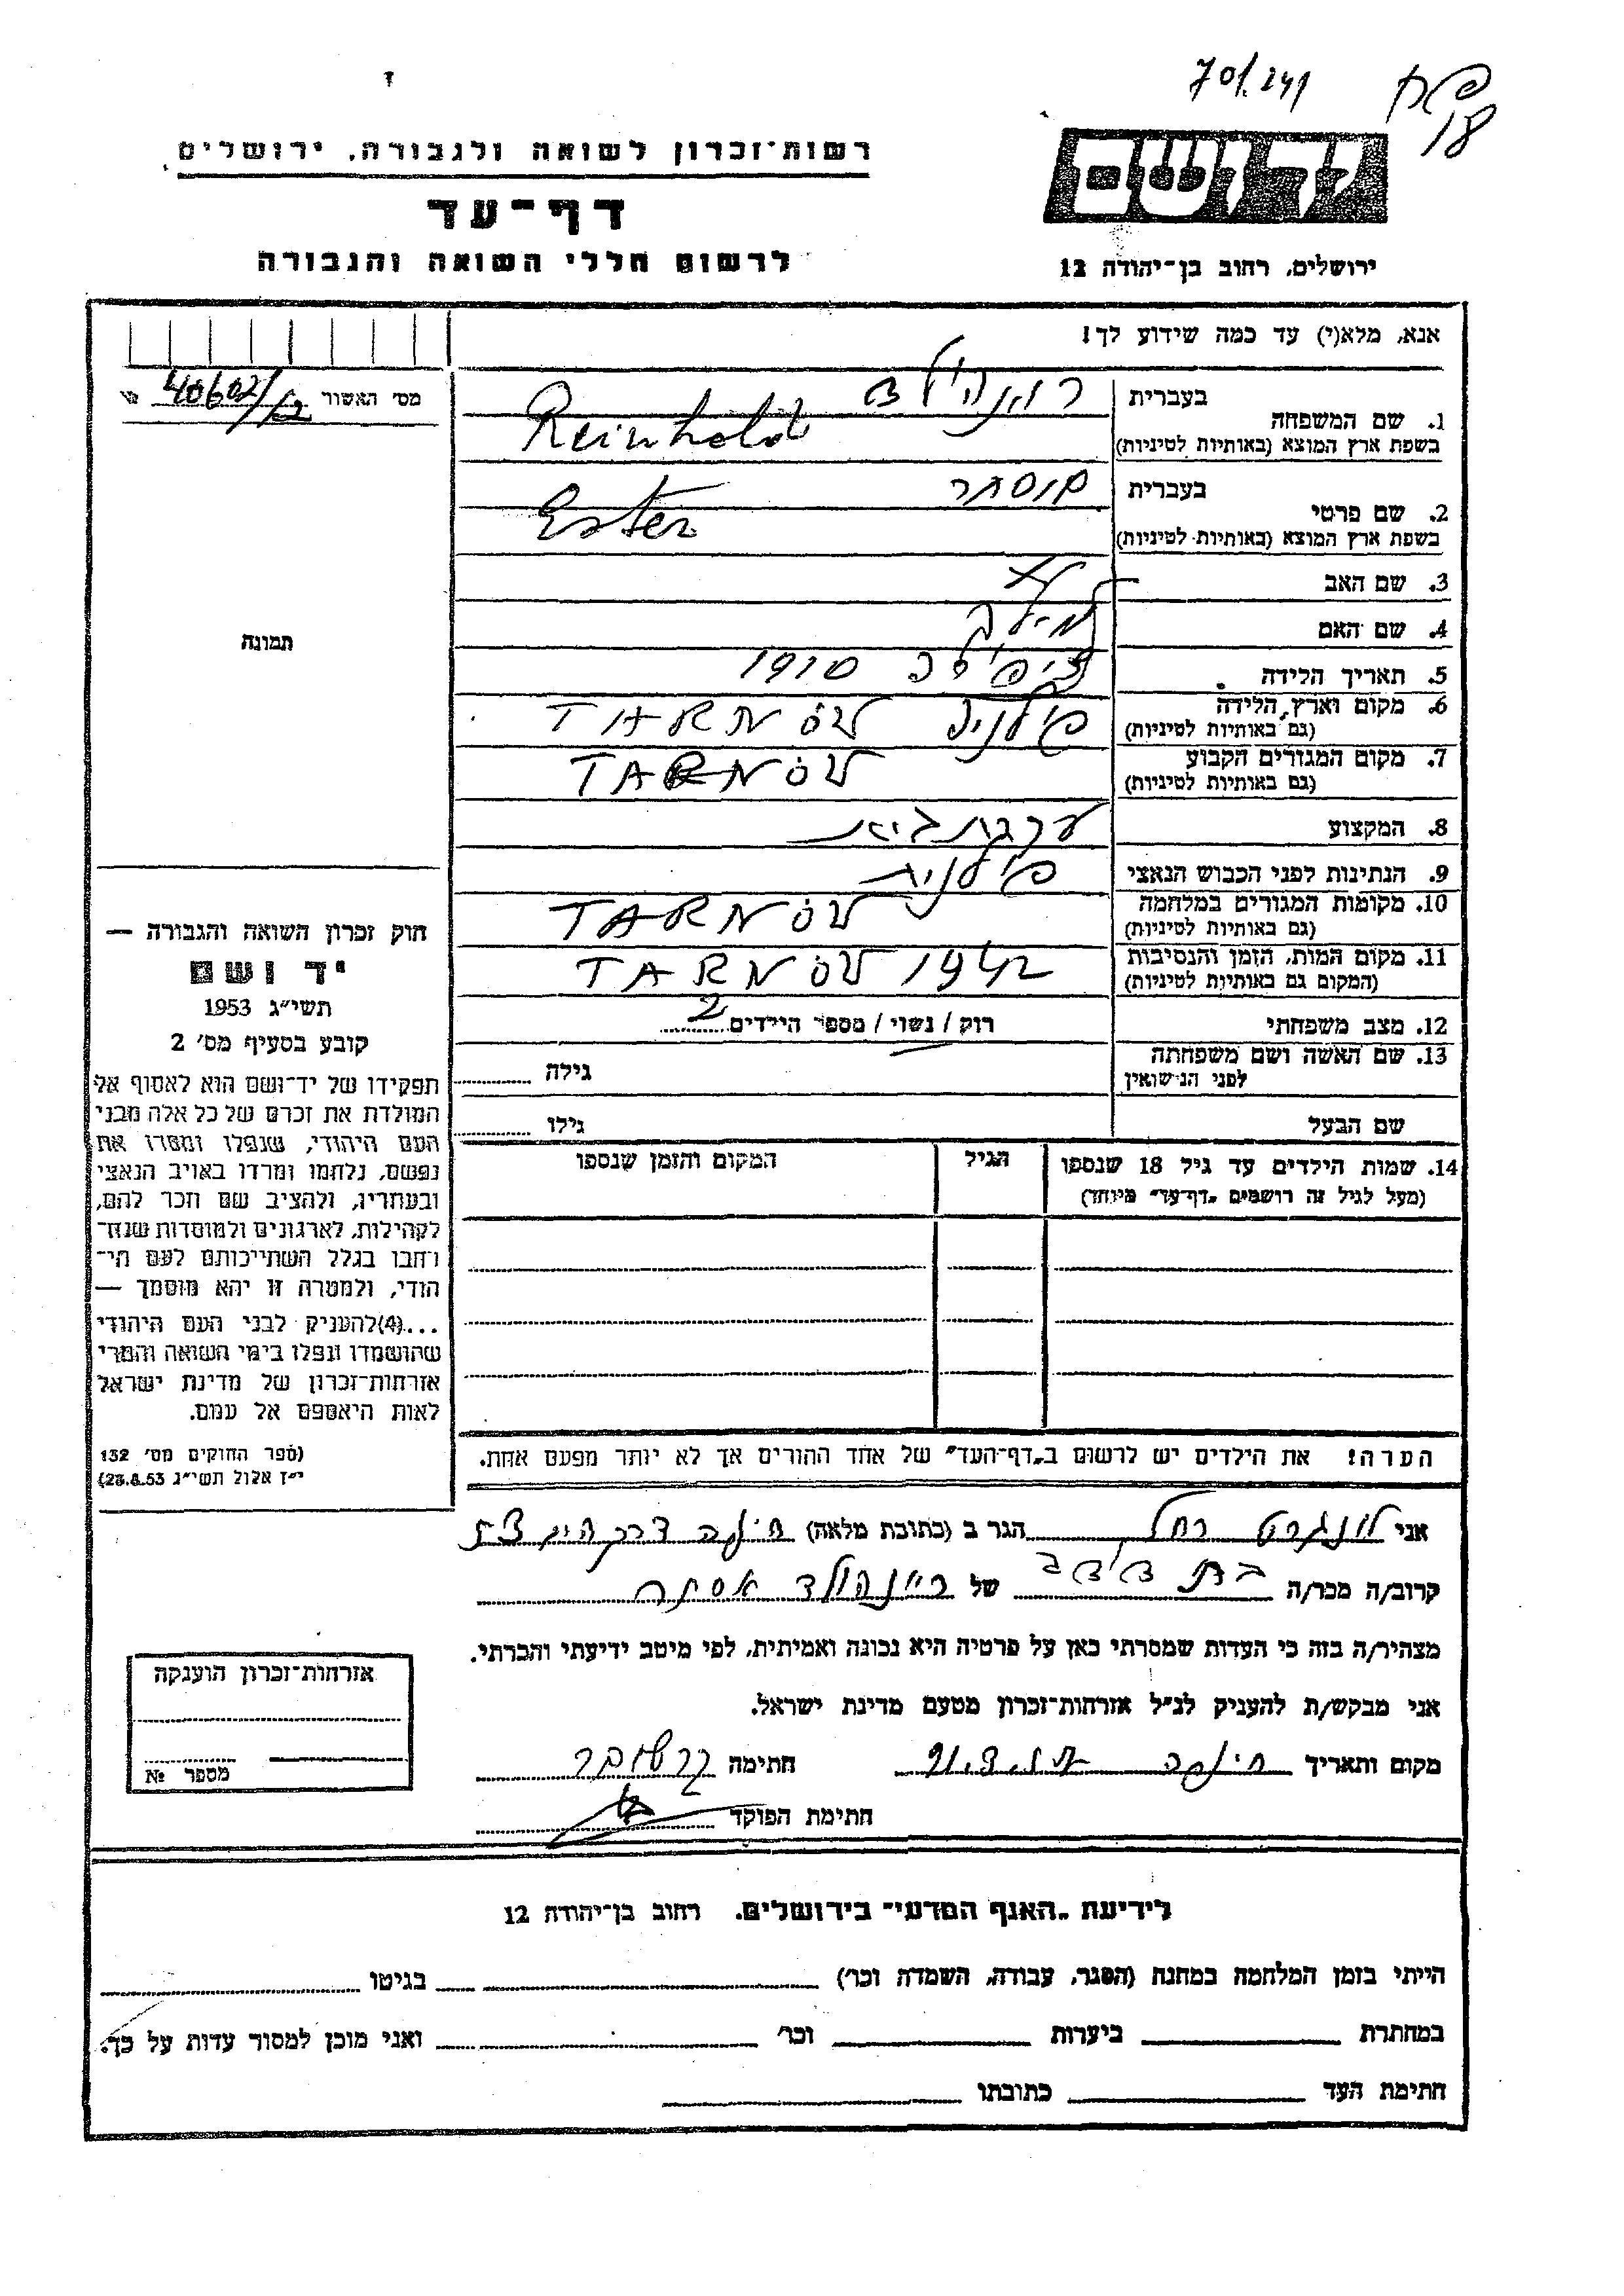 70/.241
18
רשות־זכרון לשואה ולגבורה, ירושלים
דף־עד
לרשום חללי השואה והגבורה
ידושם
ירושלים, רחוב בן־יהודה 12
אנא, מלא(י) עד כמה שידוע לך!
מס׳ האשור 40602/
1. שם המשפחה
בעברית
בשפת ארץ המוצא (באותיות לטיניות) Reinhold
2. שם פרטי
בעברית
בשפת ארץ המוצא (באותיות לטיניות) Ester
3. שם האב
4. שם האם
5. תאריך הלידה 1910
6. מקום וארץ הלידה TARNÓW
(גם באותיות לטיניות)
7. מקום המגורים הקבוע TARNÓW
(גם באותיות לטיניות)
8. המקצוע
9. הנתינות לפני הכבוש הנאצי פולנית
10. מקומות המגורים במלחמה TARNÓW
(גם באותיות לטיניות)
11. מקום המות, הזמן והנסיבות TARNÓW 1942
(המקום גם באותיות לטיניות)
12. מצב משפחתי רוק / נשוי / מספר הילדים 2
13. שם האשה ושם משפחתה
לפני הנישואין
גילה
שם הבעל גילו
14. שמות הילדים עד גיל 18 שנספו
(מעל לגיל זה רושמים „דף־עד״ מיוחד)
הגיל
המקום והזמן שנספו
הערה! את הילדים יש לרשום ב„דף־העד״ של אחד ההורים אך לא יותר מפעם אחת.
תמונה
חוק זכרון השואה והגבורה —
יד ושם
תשי״ג 1953
קובע בסעיף מס׳ 2
תפקידו של יד־ושם הוא לאסוף אל
המולדת את זכרם של כל אלה מבני
העם היהודי, שנפלו ומסרו את
נפשם, נלחמו ומרדו באויב הנאצי
ובעוזריו, ולהציב שם וזכר להם,
לקהילות, לארגונים ולמוסדות שנח־
רבו בגלל השתייכותם לעם הי־
הודי, ולמטרה זו יהא מוסמך —
...(4) להעניק לבני העם היהודי
שהושמדו ונפלו בימי השואה והמרי
אזרחות־זכרון של מדינת ישראל
לאות היאספם אל עמם.
(ספר החוקים מס׳ 132
י״ז אלול תשי״ג 28.8.53)
אני רחל הגר ב (כתובת מלאה) חיפה דרך
קרוב/ה מכר/ה בת דודה של ריינהולד אסתר
מצהיר/ה בזה כי העדות שמסרתי כאן על פרטיה היא נכונה ואמיתית, לפי מיטב ידיעתי והכרתי.
אני מבקש/ת להעניק לנ״ל אזרחות־זכרון מטעם מדינת ישראל.
מקום ותאריך חיפה חתימה
חתימת הפוקד
אזרחות־זכרון הוענקה
מספר №
לידיעת „האגף המדעי״ בירושלים, רחוב בן־יהודה 12
הייתי בזמן המלחמה במחנה (הסגר, עבודה, השמדה וכו׳) בגיטו
במחתרת ביערות וכו׳ ואני מוכן למסור עדות על כך.
חתימת העד כתובתו